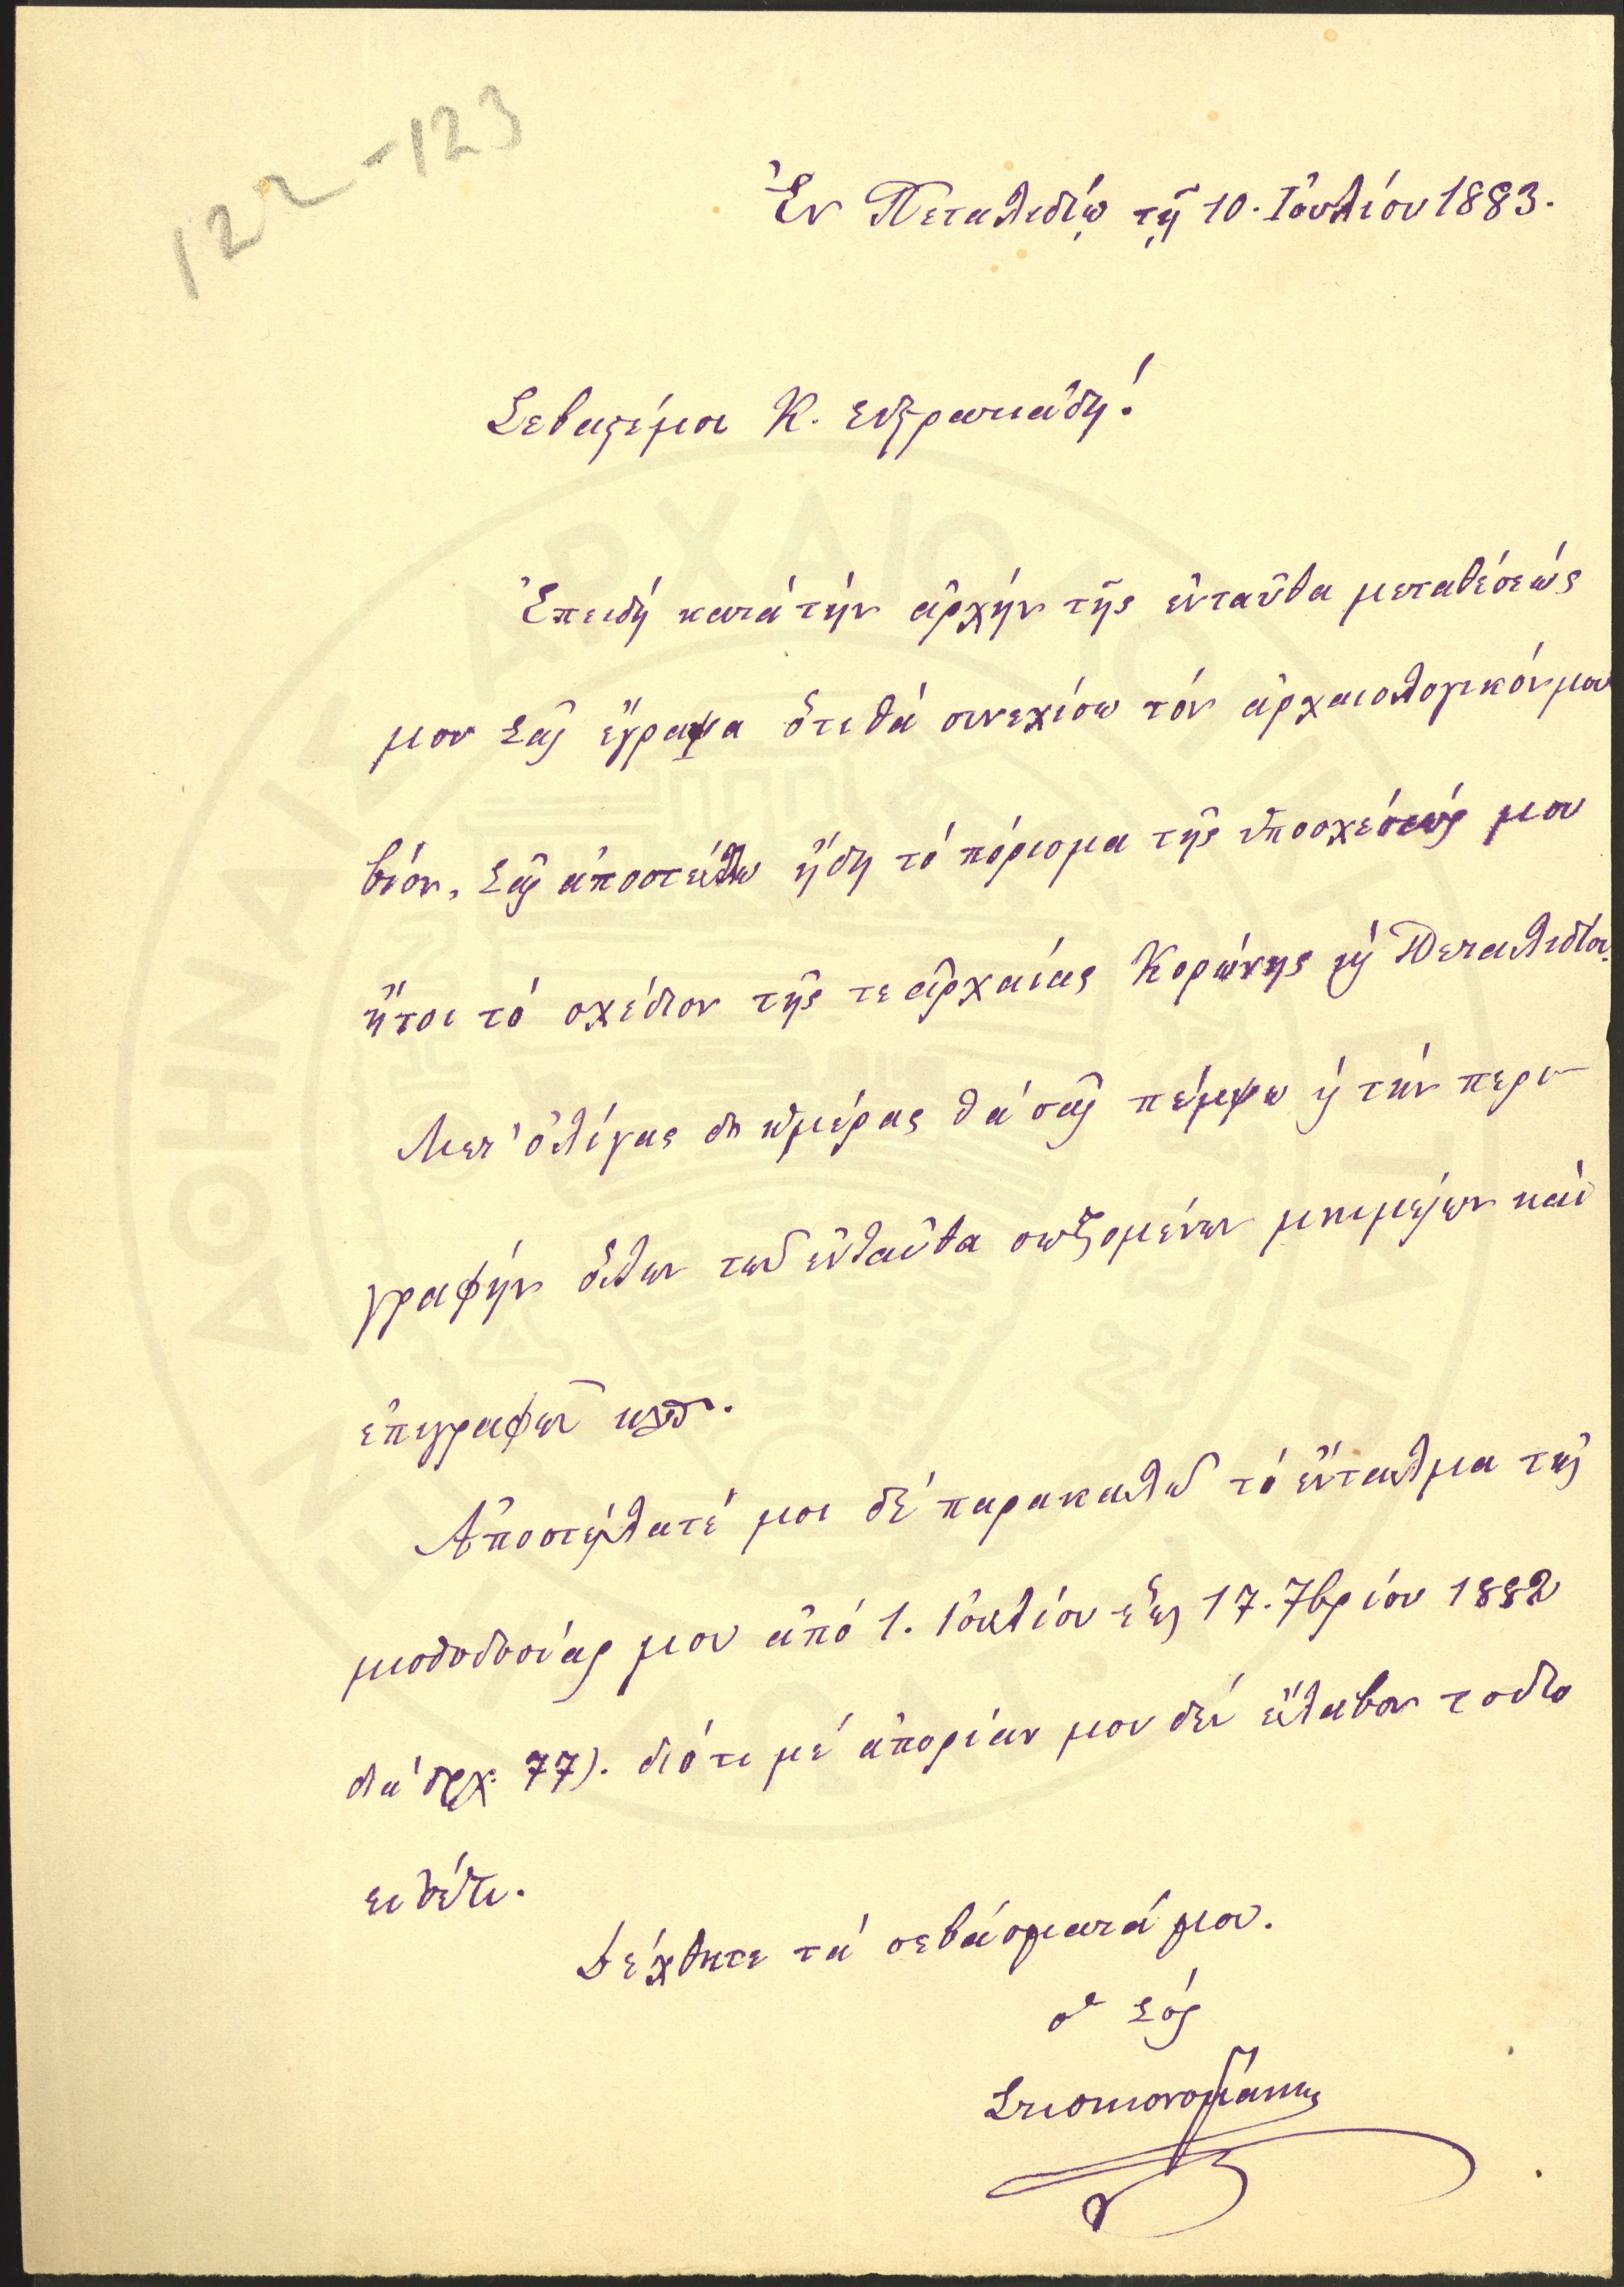 122-123
Ἐν Πεταλιδίῳ τῇ 10. Ἰουλίου 1883.
Σεβαστέ μοι Κ. Εὐστρατιάδη!
Ἐπειδή κατά τήν ἀρχήν τῆς ἐνταῦθα μεταθέσεώς
μου Σᾶς ἔγραψα ὅτι θά συνεχίσω τόν ἀρχαιολογικόν μου
βίον, Σᾶς ἀποστέλλω ἤδη τό πόρισμα τῆς ὑποσχέσεώς μου
ἤτοι τό σχέδιον τῆς τε ἀρχαίας Κορώνης ἤ Πεταλιδίου.
Μετ' ὀλίγας δὲ ἡμέρας θά σᾶς πέμψω ἤ τήν περι-
γραφήν ὅλων τῶν ἐνταῦθα σωζομένων μνημείων καί
ἐπιγραφῶν κλπ.
Ἀποστείλατέ μοι δέ παρακαλῶ τό ἔνταλμα τῆς
μισθοδοσίας μου ἀπό 1. Ἰουλίου ἕως 17. 7βρίου 1882
διά δρχ. 77). διότι μέ ἀπορίαν μου δέν ἔλαβον τοῦτο
εἰσέτι.
Δέχθητε τά σεβάσματά μου.
ὁ Σός